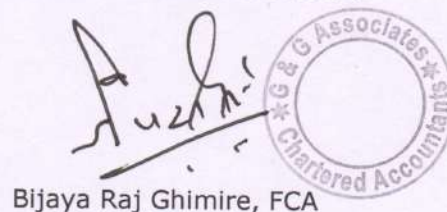 G & G Associates
Chartered Accountants
Bijaya Raj Ghimire, FCA